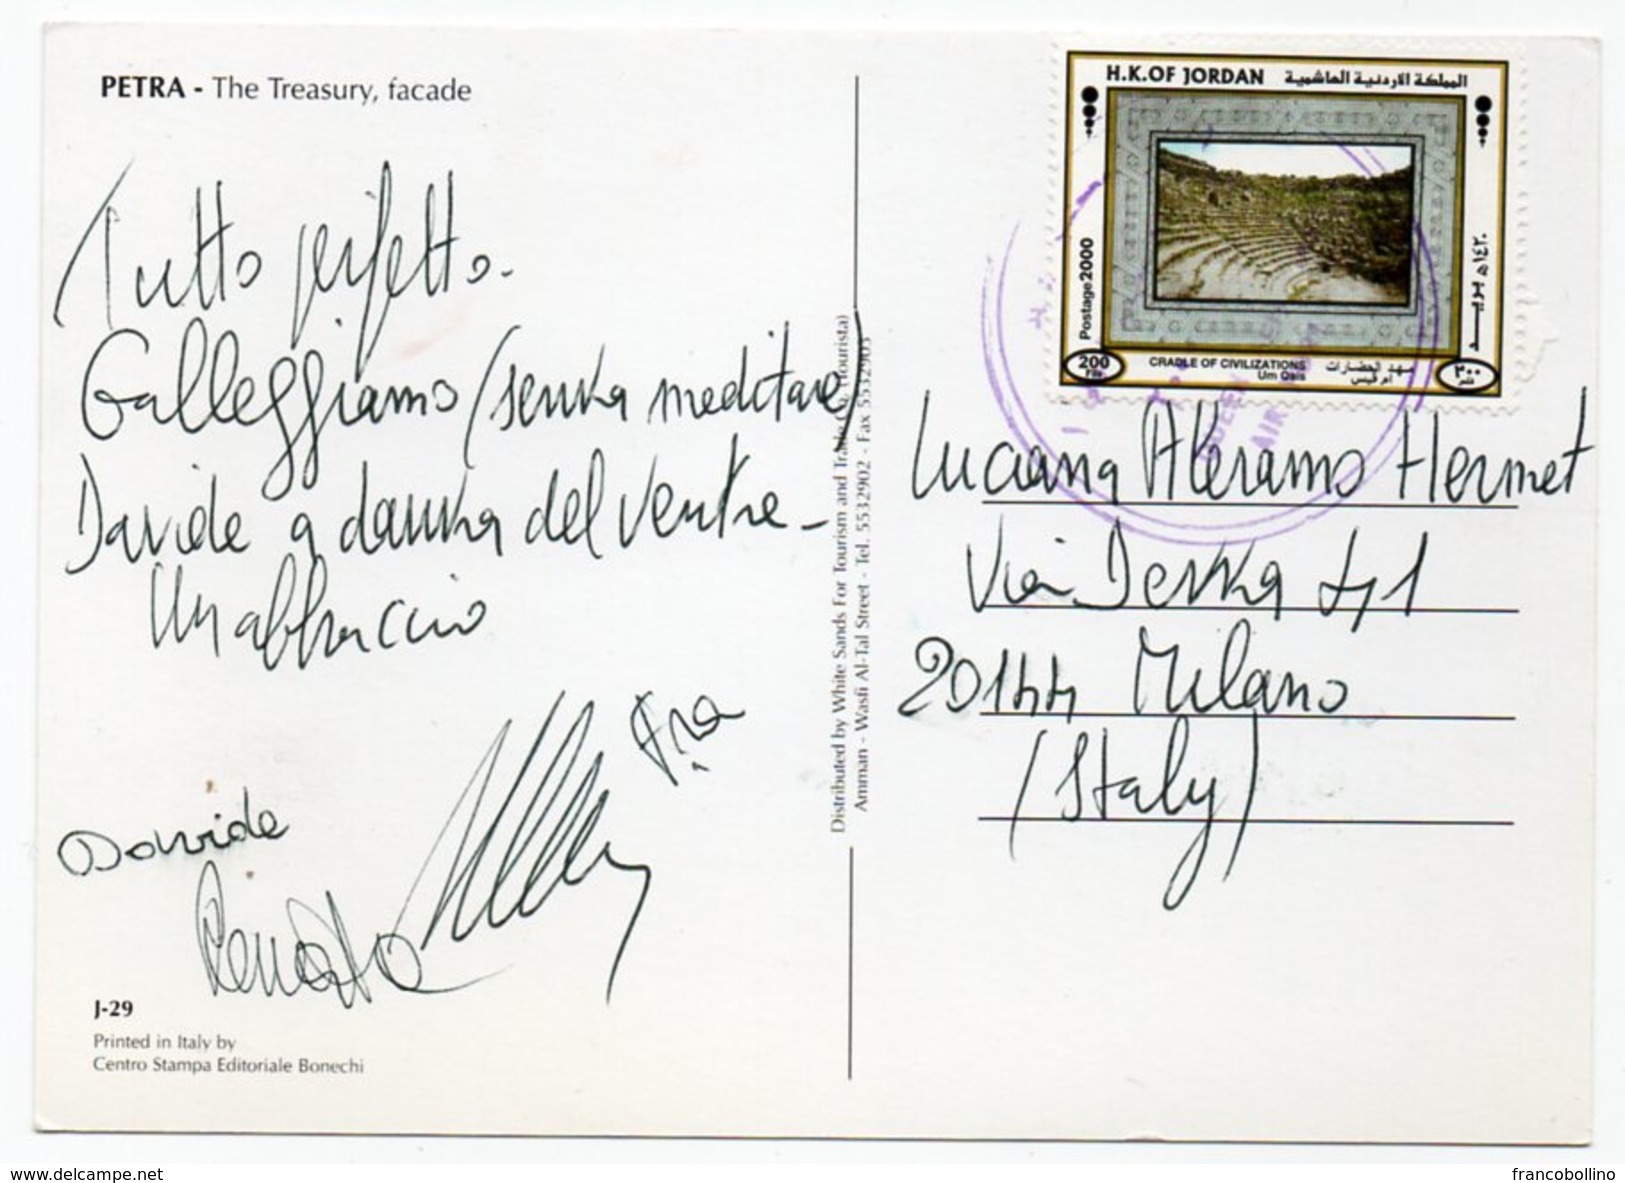 PETRA - The Treasury, facade
Tutto perfetto.
Galleggiamo (senza meditare)
Davide a danza del ventre -
Un abbraccio
Davide
Renato
J-29
Printed in Italy by
Centro Stampa Editoriale Bonechi
Distributed by White Sands For Tourism and Trade
Amman - Wasfi Al-Tal Street - Tel. 5532902 - Fax 5532903
H.K.OF JORDAN المملكة الاردنية الهاشمية
Postage 2000
١٤٢٠ هجرية
200 Fils
CRADLE OF CIVILIZATIONS
Um Qais
مهد الحضارات
ام قيس
٢٠٠ فلس
QUEEN
AIR
Luciana Aleramo Hermet
Via Dezza 41
20144 Milano
(Italy)
delcampe.net
francobollino